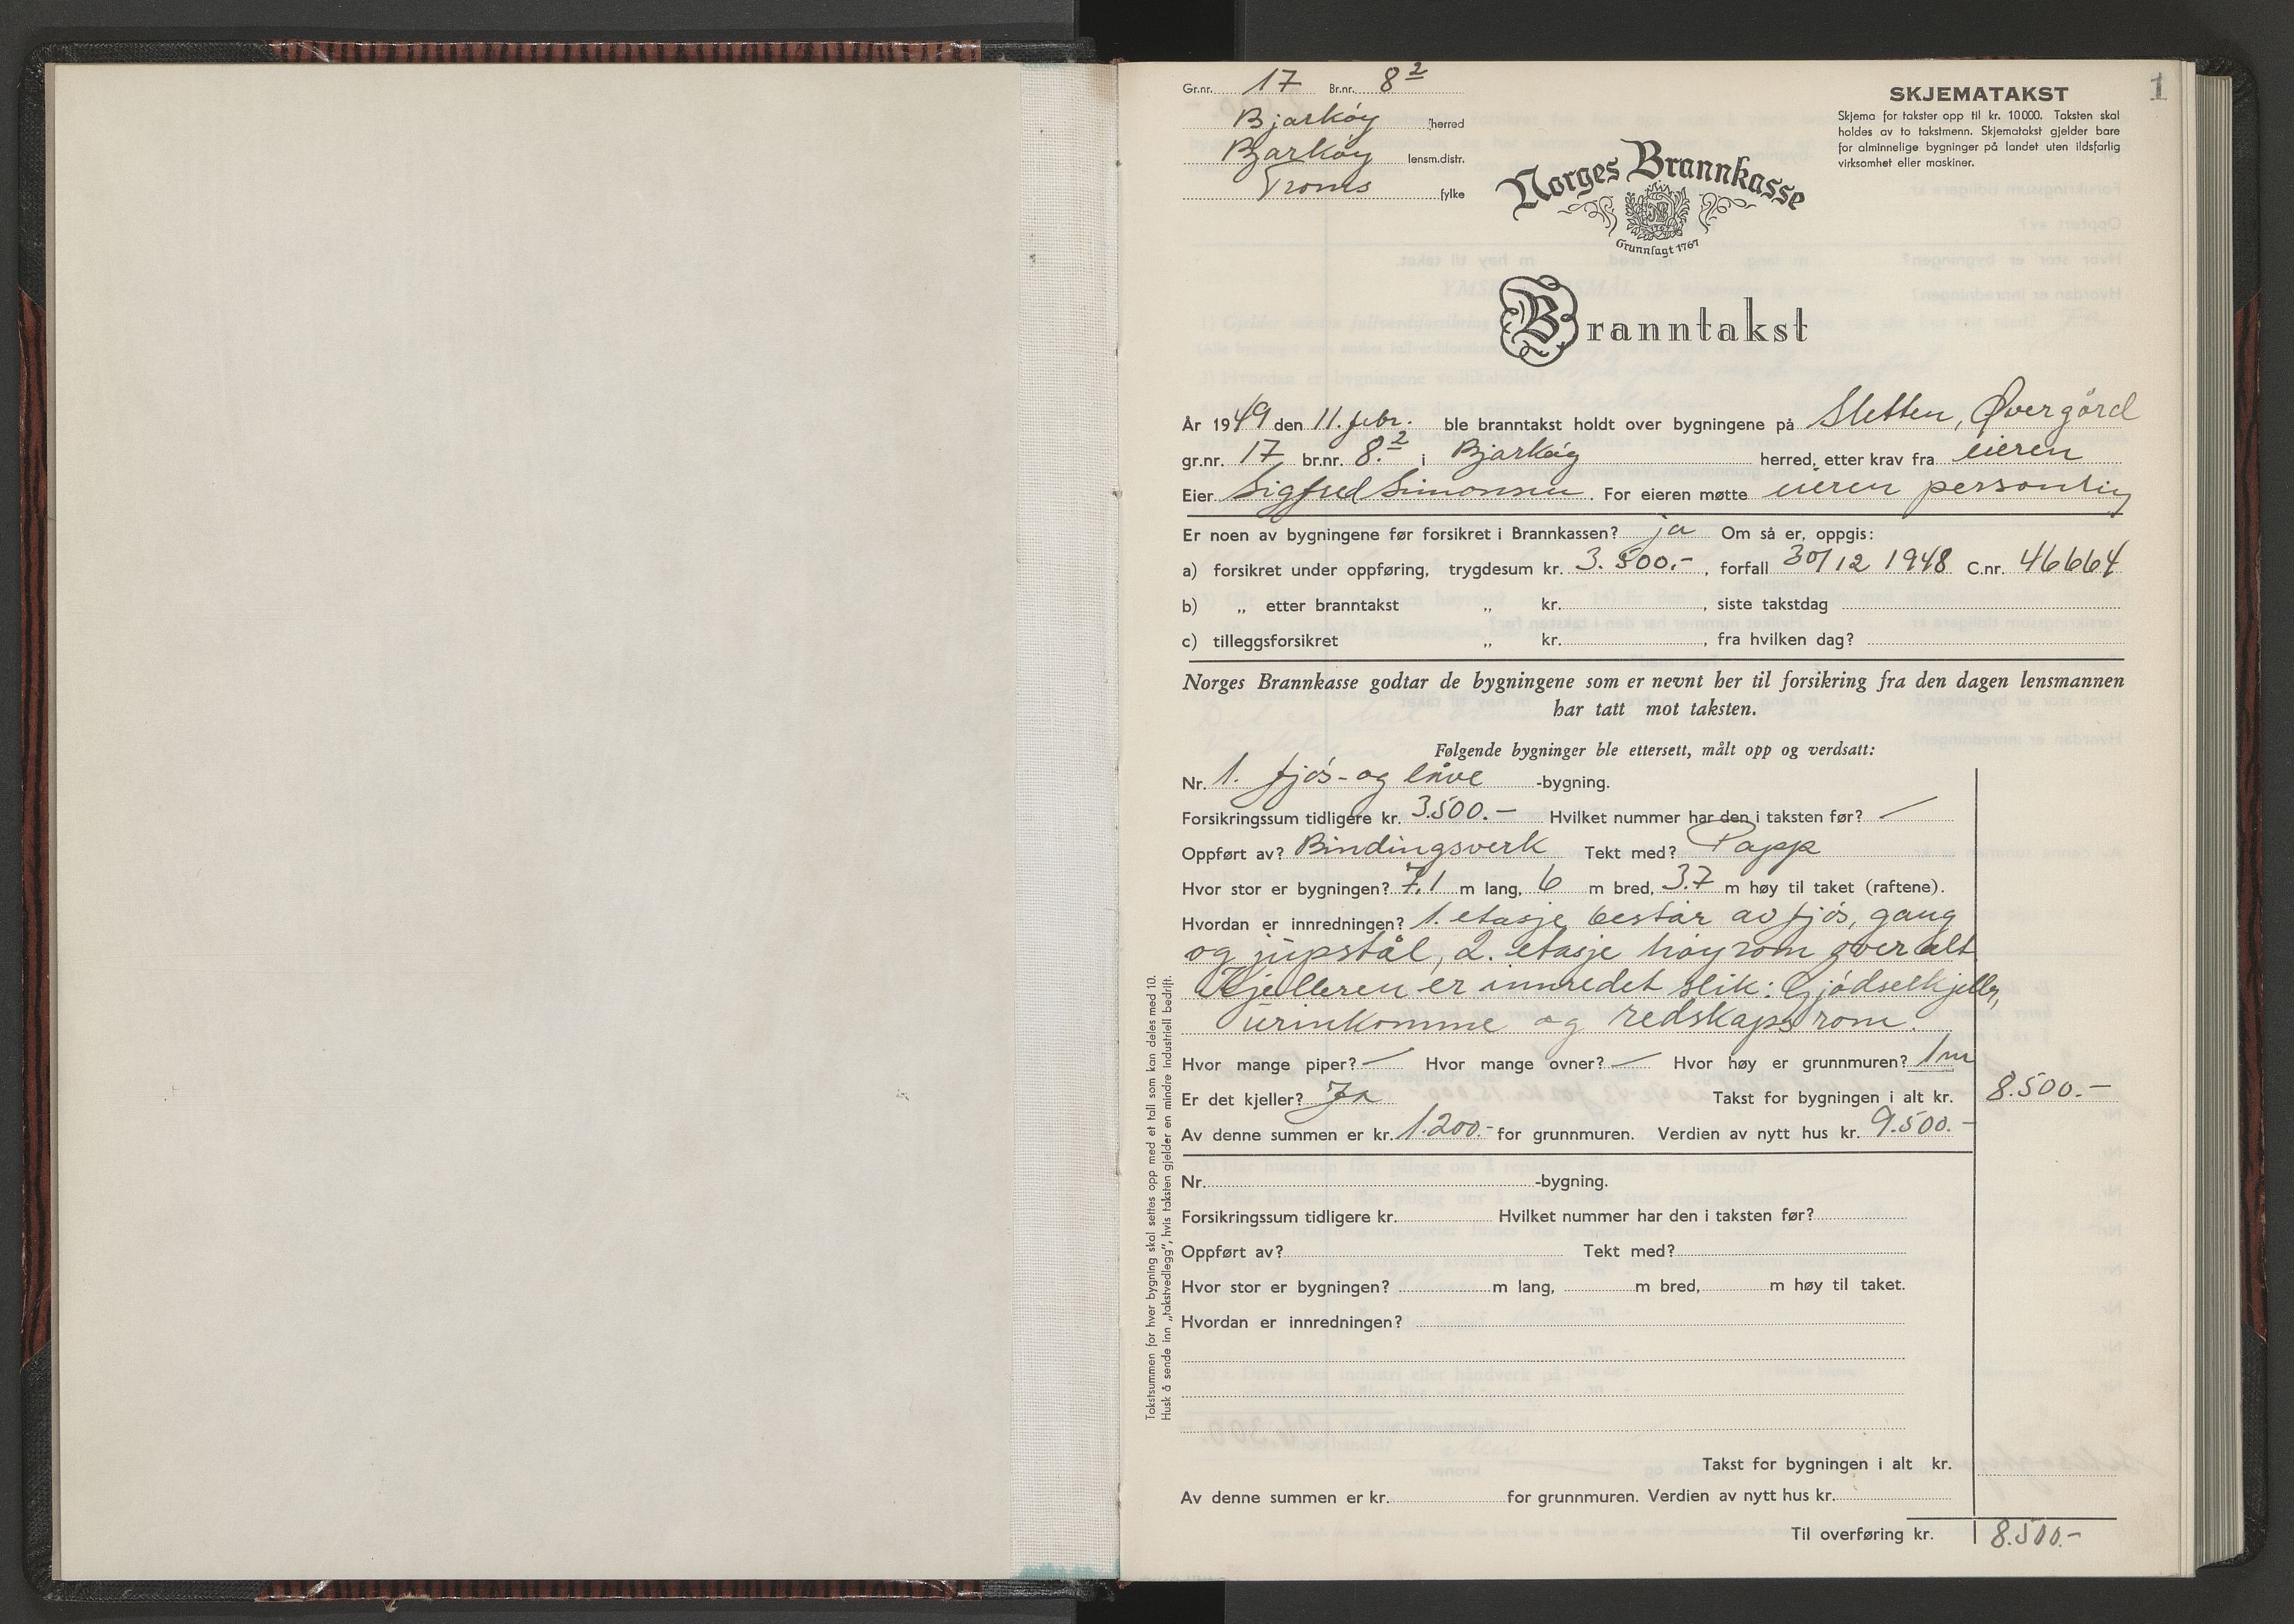 Gr.nr. 17 Br.nr. 8²
Bjarkøy herred
Bjarkøy lensm.distr.
Troms fylke
SKJEMATAKST
1
Skjema for takster opp til kr. 10 000. Taksten skal
holdes av to takstmenn. Skjematakst gjelder bare
for alminnelige bygninger på landet uten ildsfarlig
virksomhet eller maskiner.
Norges Brannkasse
Grunnlagt 1767
Branntakst
År 1949 den 11. febr. ble branntakst holdt over bygningene på Sletten, Øvergård
gr.nr. 17 br.nr. 8.² i Bjarkøy herred, etter krav fra eieren
Eier Sigfred Simonsen. For eieren møtte eieren personlig
Er noen av bygningene før forsikret i Brannkassen? ja Om så er, oppgis:
a) forsikret under oppføring, trygdesum kr. 3.500.-, forfall 30/12 1948 C.nr. 46664
b) „ etter branntakst „ kr. , siste takstdag
c) tilleggsforsikret „ kr. , fra hvilken dag?
Norges Brannkasse godtar de bygningene som er nevnt her til forsikring fra den dagen lensmannen
har tatt mot taksten.
Følgende bygninger ble ettersett, målt opp og verdsatt:
Nr. 1. fjøs- og låve -bygning.
Forsikringssum tidligere kr. 3.500.- Hvilket nummer har den i taksten før? —
Oppført av? Bindingsverk Tekt med? Papp
Hvor stor er bygningen? 7,1 m lang, 6 m bred, 3.7 m høy til taket (raftene).
Hvordan er innredningen? 1. etasje består av fjøs, gang
og jupstål, 2. etasje høyrom over alt
Kjelleren er innredet slik: Gjødselkjeller,
urinkomme og redskapsrom.
Hvor mange piper? — Hvor mange ovner? — Hvor høy er grunnmuren? 1 m
Er det kjeller? Ja Takst for bygningen i alt kr. 8.500.-
Av denne summen er kr. 1.200.- for grunnmuren. Verdien av nytt hus kr. 9.500.-
Nr. -bygning.
Forsikringssum tidligere kr. Hvilket nummer har den i taksten før?
Oppført av? Tekt med?
Hvor stor er bygningen? m lang, m bred, m høy til taket.
Hvordan er innredningen?
Takst for bygningen i alt kr.
Av denne summen er kr. for grunnmuren. Verdien av nytt hus kr.
Til overføring kr. 8.500.-
Takstsummen for hver bygning skal settes opp med et tall som kan deles med 10.
Husk å sende inn „takstvedlegg”, hvis taksten gjelder en mindre industriell bedrift.